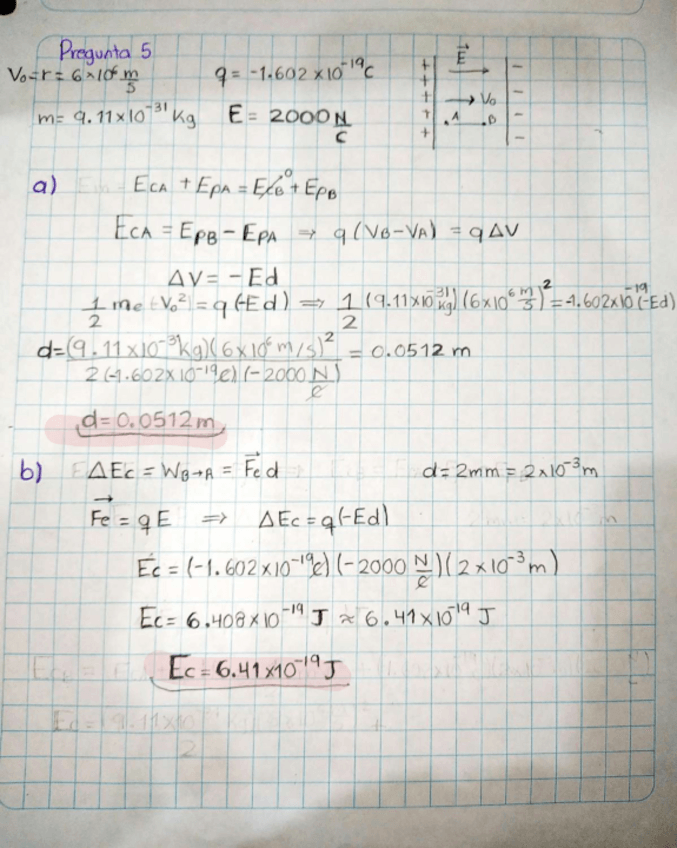 Pregunta 5
V₀=r= 6×10⁶ m/s q = -1.602 ×10⁻¹⁹C
m= 9.11×10⁻³¹ Kg E = 2000 N/C
+ + + + + E⃗ → V₀ .A .B - - - -
a) E_CA + E_PA = E_CB⁰ + E_PB
E_CA = E_PB - E_PA ⇒ q (V_B-V_A) = q ΔV
ΔV= -Ed
1/2 me (V₀²) = q (-Ed) ⇒ 1/2 (9.11×10⁻³¹ kg) (6×10⁶ m/s)² = -1.602×10⁻¹⁹ (-Ed)
d= (9.11×10⁻³¹kg)(6×10⁶ m/s)² / 2(-1.602×10⁻¹⁹C)(-2000 N/C) = 0.0512 m
d= 0.0512 m
b) ΔEc = W_B→A = F⃗e d d= 2mm = 2×10⁻³m
F⃗e = q E ⇒ ΔEc = q(-Ed)
Ec = (-1.602×10⁻¹⁹C) (-2000 N/C) (2×10⁻³m)
Ec= 6.408×10⁻¹⁹ J ≈ 6.41×10⁻¹⁹ J
Ec = 6.41×10⁻¹⁹J